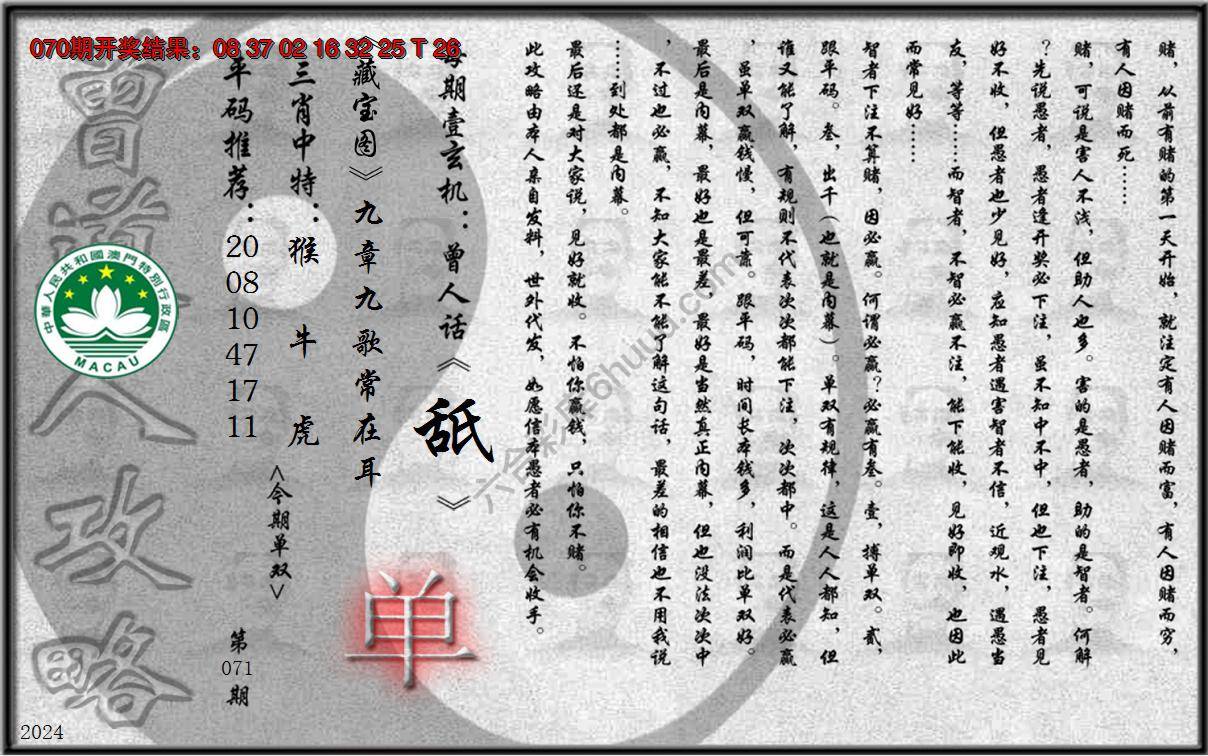 070期开奖结果：08 37 02 16 32 25 T 26
赌，从前有赌的第一天开始，就注定有人因赌而富，有人因赌而穷，
有人因赌而死……
赌，可说是害人不浅，但助人也多。害的是愚者，助的是智者。何解
？先说愚者，愚者逢开奖必下注，虽不知中不中，但也下注，愚者见
好不收，但愚者也少见好，应知愚者遇害智者不信，近观水，遇愚当
友，等等……而智者，不智必赢不注，能下能收，见好即收，也因此
而常见好……
智者下注不算赌，因必赢。何谓必赢？必赢有叁。壹，搏单双。贰，
跟平码。叁，出千（也就是内幕）。单双有规律，这是人人都知，但
谁又能了解，有规则不代表次次都能下注，次次都中。而是代表必赢
，虽单双赢钱慢，但可靠。跟平码，时间长本钱多，利润比单双好。
最后是内幕，最好也是最差，最好是当然真正内幕，但也没法次次中
，不过也必赢，不知大家能不能了解这句话，最差的相信也不用我说
……到处都是内幕。
最后还是对大家说，见好就收。不怕你赢钱，只怕你不赌。
此攻略由本人亲自发料，世外代发，如愿信本愚者必有机会收手。
每期壹玄机：曾人话《舐》
《藏宝图》九章九歌常在耳
三肖中特：猴 牛 虎
平码推荐：20 08 10 47 17 11
<今期单双>
单
第071期
曾道人攻略
中華人民共和國澳門特別行政區
MACAU
六合彩库6huuu.com
2024